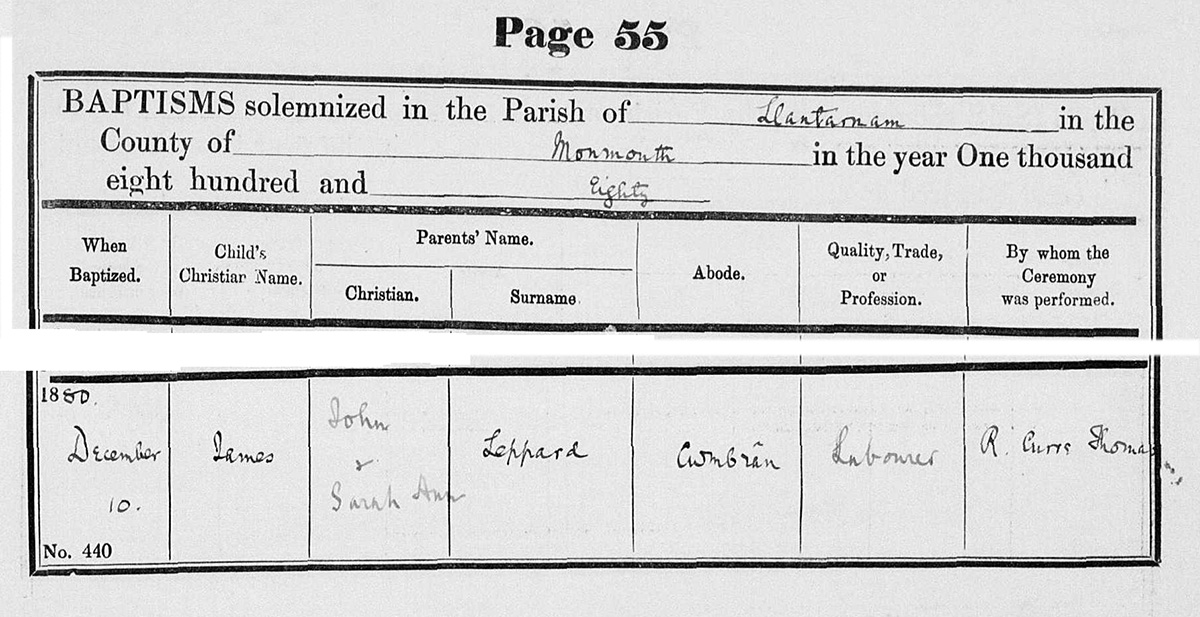 Page 55
BAPTISMS solemnized in the Parish of Llantarnam in the
County of Monmouth in the year One thousand
eight hundred and Eighty
When Baptized.
Child's Christiar Name.
Parents' Name.
Christian.
Surname
Abode.
Quality, Trade, or Profession.
By whom the Ceremony was performed.
1880.
December
10.
No. 440
James
John
&
Sarah Ann
Leppard
Cwmbrân
Labourer
R. Curre Thomas